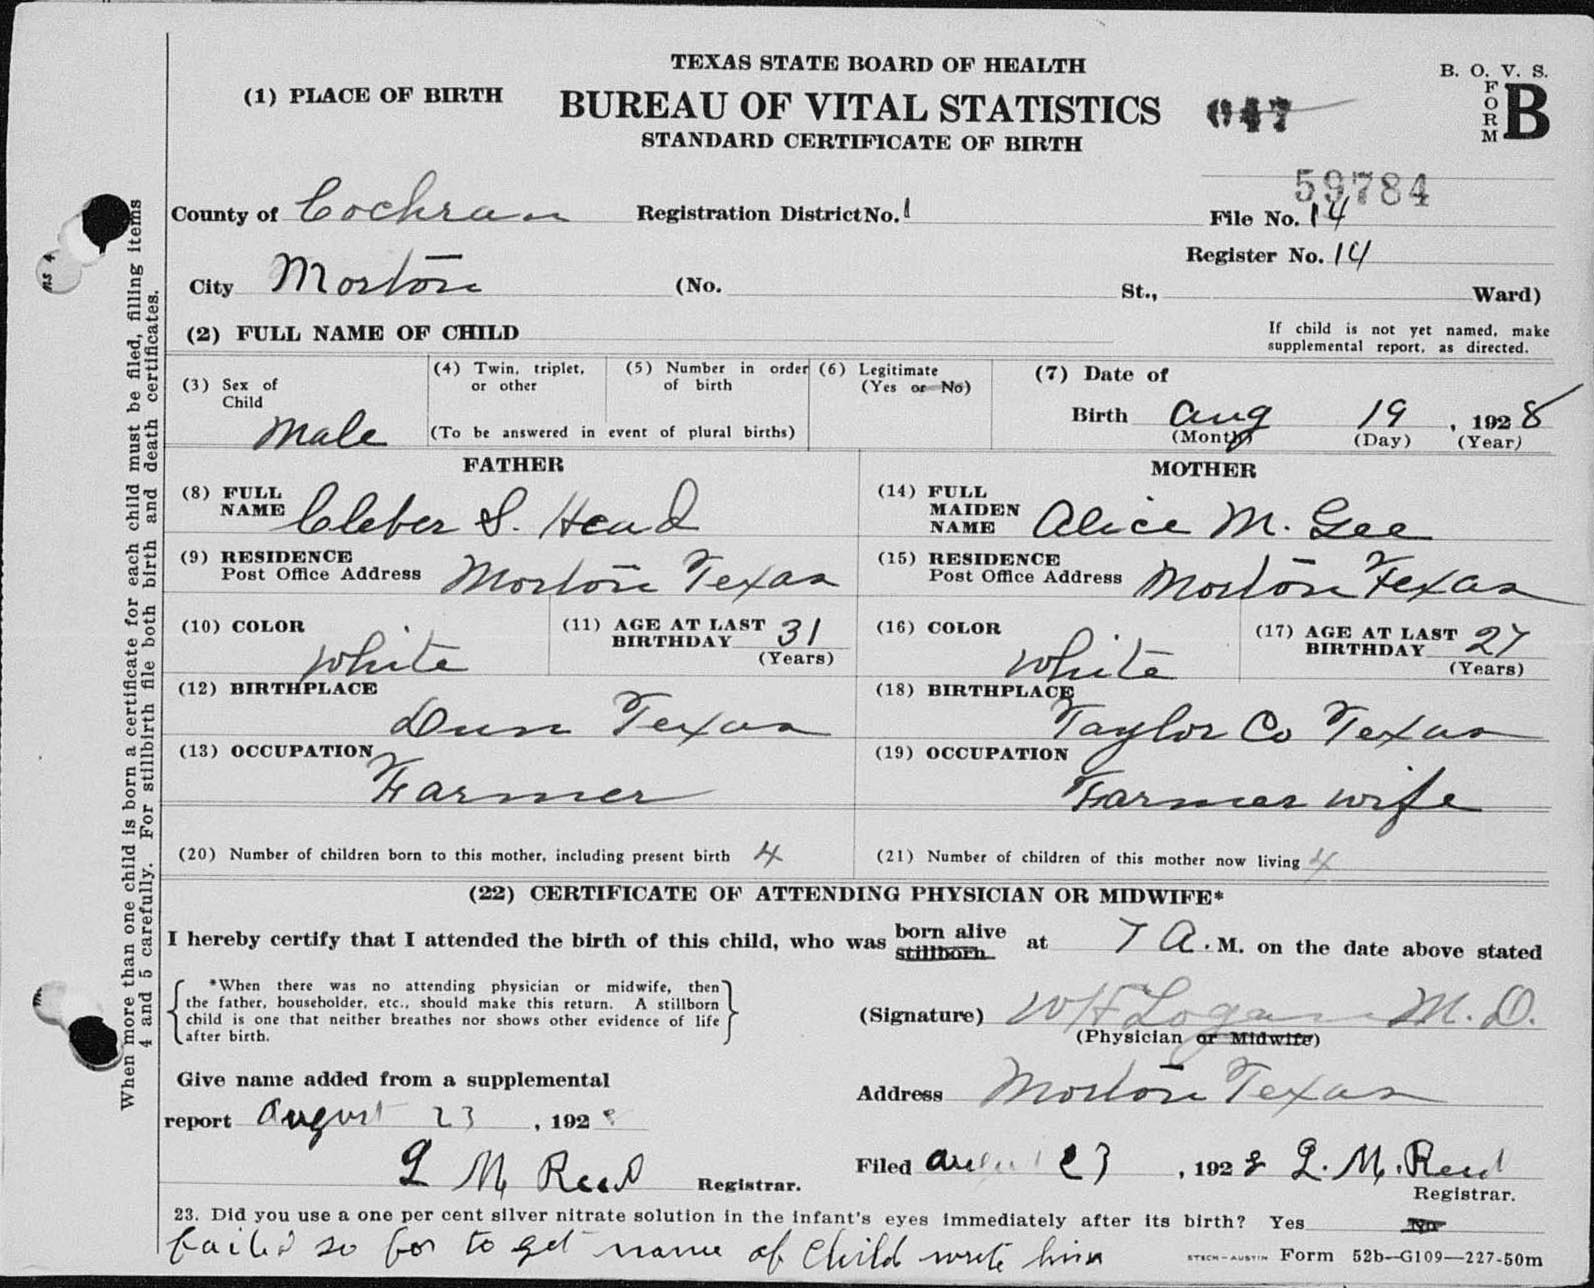 TEXAS STATE BOARD OF HEALTH
B. O. V. S.
(1) PLACE OF BIRTH
BUREAU OF VITAL STATISTICS
FORM B
STANDARD CERTIFICATE OF BIRTH
59784
County of Cochran Registration District No. 1 File No. 14
Register No. 14
City Morton (No. St., Ward)
(2) FULL NAME OF CHILD
If child is not yet named, make
supplemental report, as directed.
(3) Sex of Child Male
(4) Twin, triplet, or other
(5) Number in order of birth
(To be answered in event of plural births)
(6) Legitimate (Yes or No)
(7) Date of
Birth Aug 19, 1928
(Month) (Day) (Year)
FATHER
(8) FULL NAME Cleber S. Head
(9) RESIDENCE
Post Office Address Morton Texas
(10) COLOR White
(11) AGE AT LAST BIRTHDAY 31 (Years)
(12) BIRTHPLACE Dunn Texas
(13) OCCUPATION Farmer
MOTHER
(14) FULL MAIDEN NAME Alice M. Gee
(15) RESIDENCE
Post Office Address Morton Texas
(16) COLOR White
(17) AGE AT LAST BIRTHDAY 27 (Years)
(18) BIRTHPLACE Taylor Co Texas
(19) OCCUPATION Farmer wife
(20) Number of children born to this mother, including present birth 4
(21) Number of children of this mother now living 4
(22) CERTIFICATE OF ATTENDING PHYSICIAN OR MIDWIFE*
I hereby certify that I attended the birth of this child, who was born alive stillborn at 7 A. M. on the date above stated
*When there was no attending physician or midwife, then
the father, householder, etc., should make this return. A stillborn
child is one that neither breathes nor shows other evidence of life
after birth.
(Signature) W H Logan M. D.
(Physician or Midwife)
Give name added from a supplemental
report August 23, 1928
L M Reed Registrar.
Address Morton Texas
Filed August 23, 1928 L. M. Reed
Registrar.
23. Did you use a one per cent silver nitrate solution in the infant's eyes immediately after its birth? Yes No
failed so far to get name of child wrote him
STECK-AUSTIN Form 52b-G109-227-50m
When more than one child is born a certificate for each child must be filed, filling items
4 and 5 carefully. For stillbirth file both birth and death certificates.